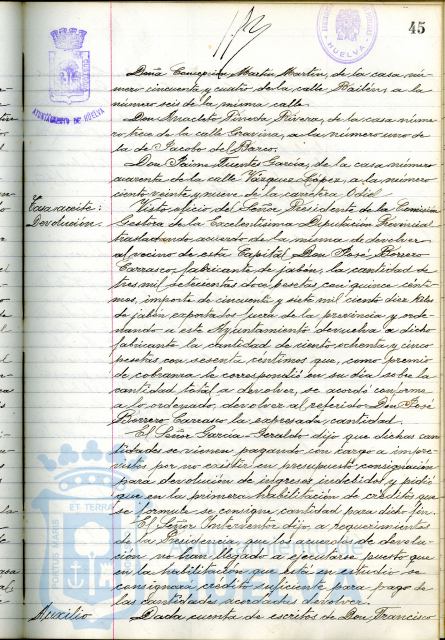 45
AYUNTAMIENTO DE HUELVA
HUELVA
Doña Concepción Martín Martín, de la casa nú-
mero cincuenta y cuatro de la calle Bailén, a la
número seis de la misma calle.
Don Anacleto Pineda Rivera, de la casa núme-
ro trece de la calle Gravina, a la número uno de
la de Jacobo del Barco.
Don Jaime Fuentes García, de la casa número
cuarenta de la calle Vázquez López, a la número
ciento veinte y nueve de la carretera Odiel
Tasa aceite:
Devolución.
Visto oficio del Señor Presidente de la Comisión
Gestora de la Excelentísima Diputación Provincial
trasladando acuerdo de la misma de devolver
al vecino de esta Capital Don José Borrero
Carrasco, fabricante de jabón, la cantidad de
tres mil setecientas doce pesetas con quince cénti-
mos, importe de cincuenta y siete mil ciento diez kilos
de jabón exportados fuera de la provincia y orde-
nando a este Ayuntamiento devuelva a dicho
fabricante la cantidad de ciento ochenta y cinco
pesetas con sesenta céntimos que, como premio
de cobranza le correspondió en su día sobre la
cantidad total a devolver, se acordó conforme
a lo ordenado, devolver al referido Don José
Borrero Carrasco la expresada cantidad.
El Señor García-Geraldo dijo que dichas can-
tidades se vienen pagando con cargo a impre-
vistos por no existir en presupuesto consignación
para devolución de ingresos indebidos y pidió
que en la primera habilitación de créditos que
se formule se consigne cantidad para dicho fin.
El Señor Interventor dijo, a requerimientos
de la Presidencia, que los acuerdos de devolu-
ción no han llegado a ejecutarse puesto que
en la habilitación que está en estudio se
consignará crédito suficiente para pago de
las cantidades acordadas devolver.
Auxilio
Dada cuenta de escritos de Don Francisco
PORTUS MARIS ET TERRAE
HUELVA